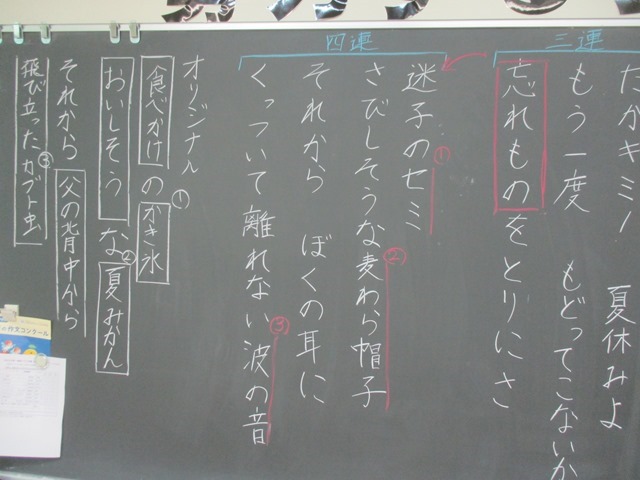 三連
夏休みよ
もう一度　もどってこないか
忘れものをとりにさ
だがキミノ
四連
迷子のセミ
①
さびしそうな麦わら帽子
②
それから　ぼくの耳に
くっついて離れない波の音
③
オリジナル
食べかけのかき氷
①
おいしそうな夏みかん
②
それから父の背中から
飛び立ったカブト虫
③